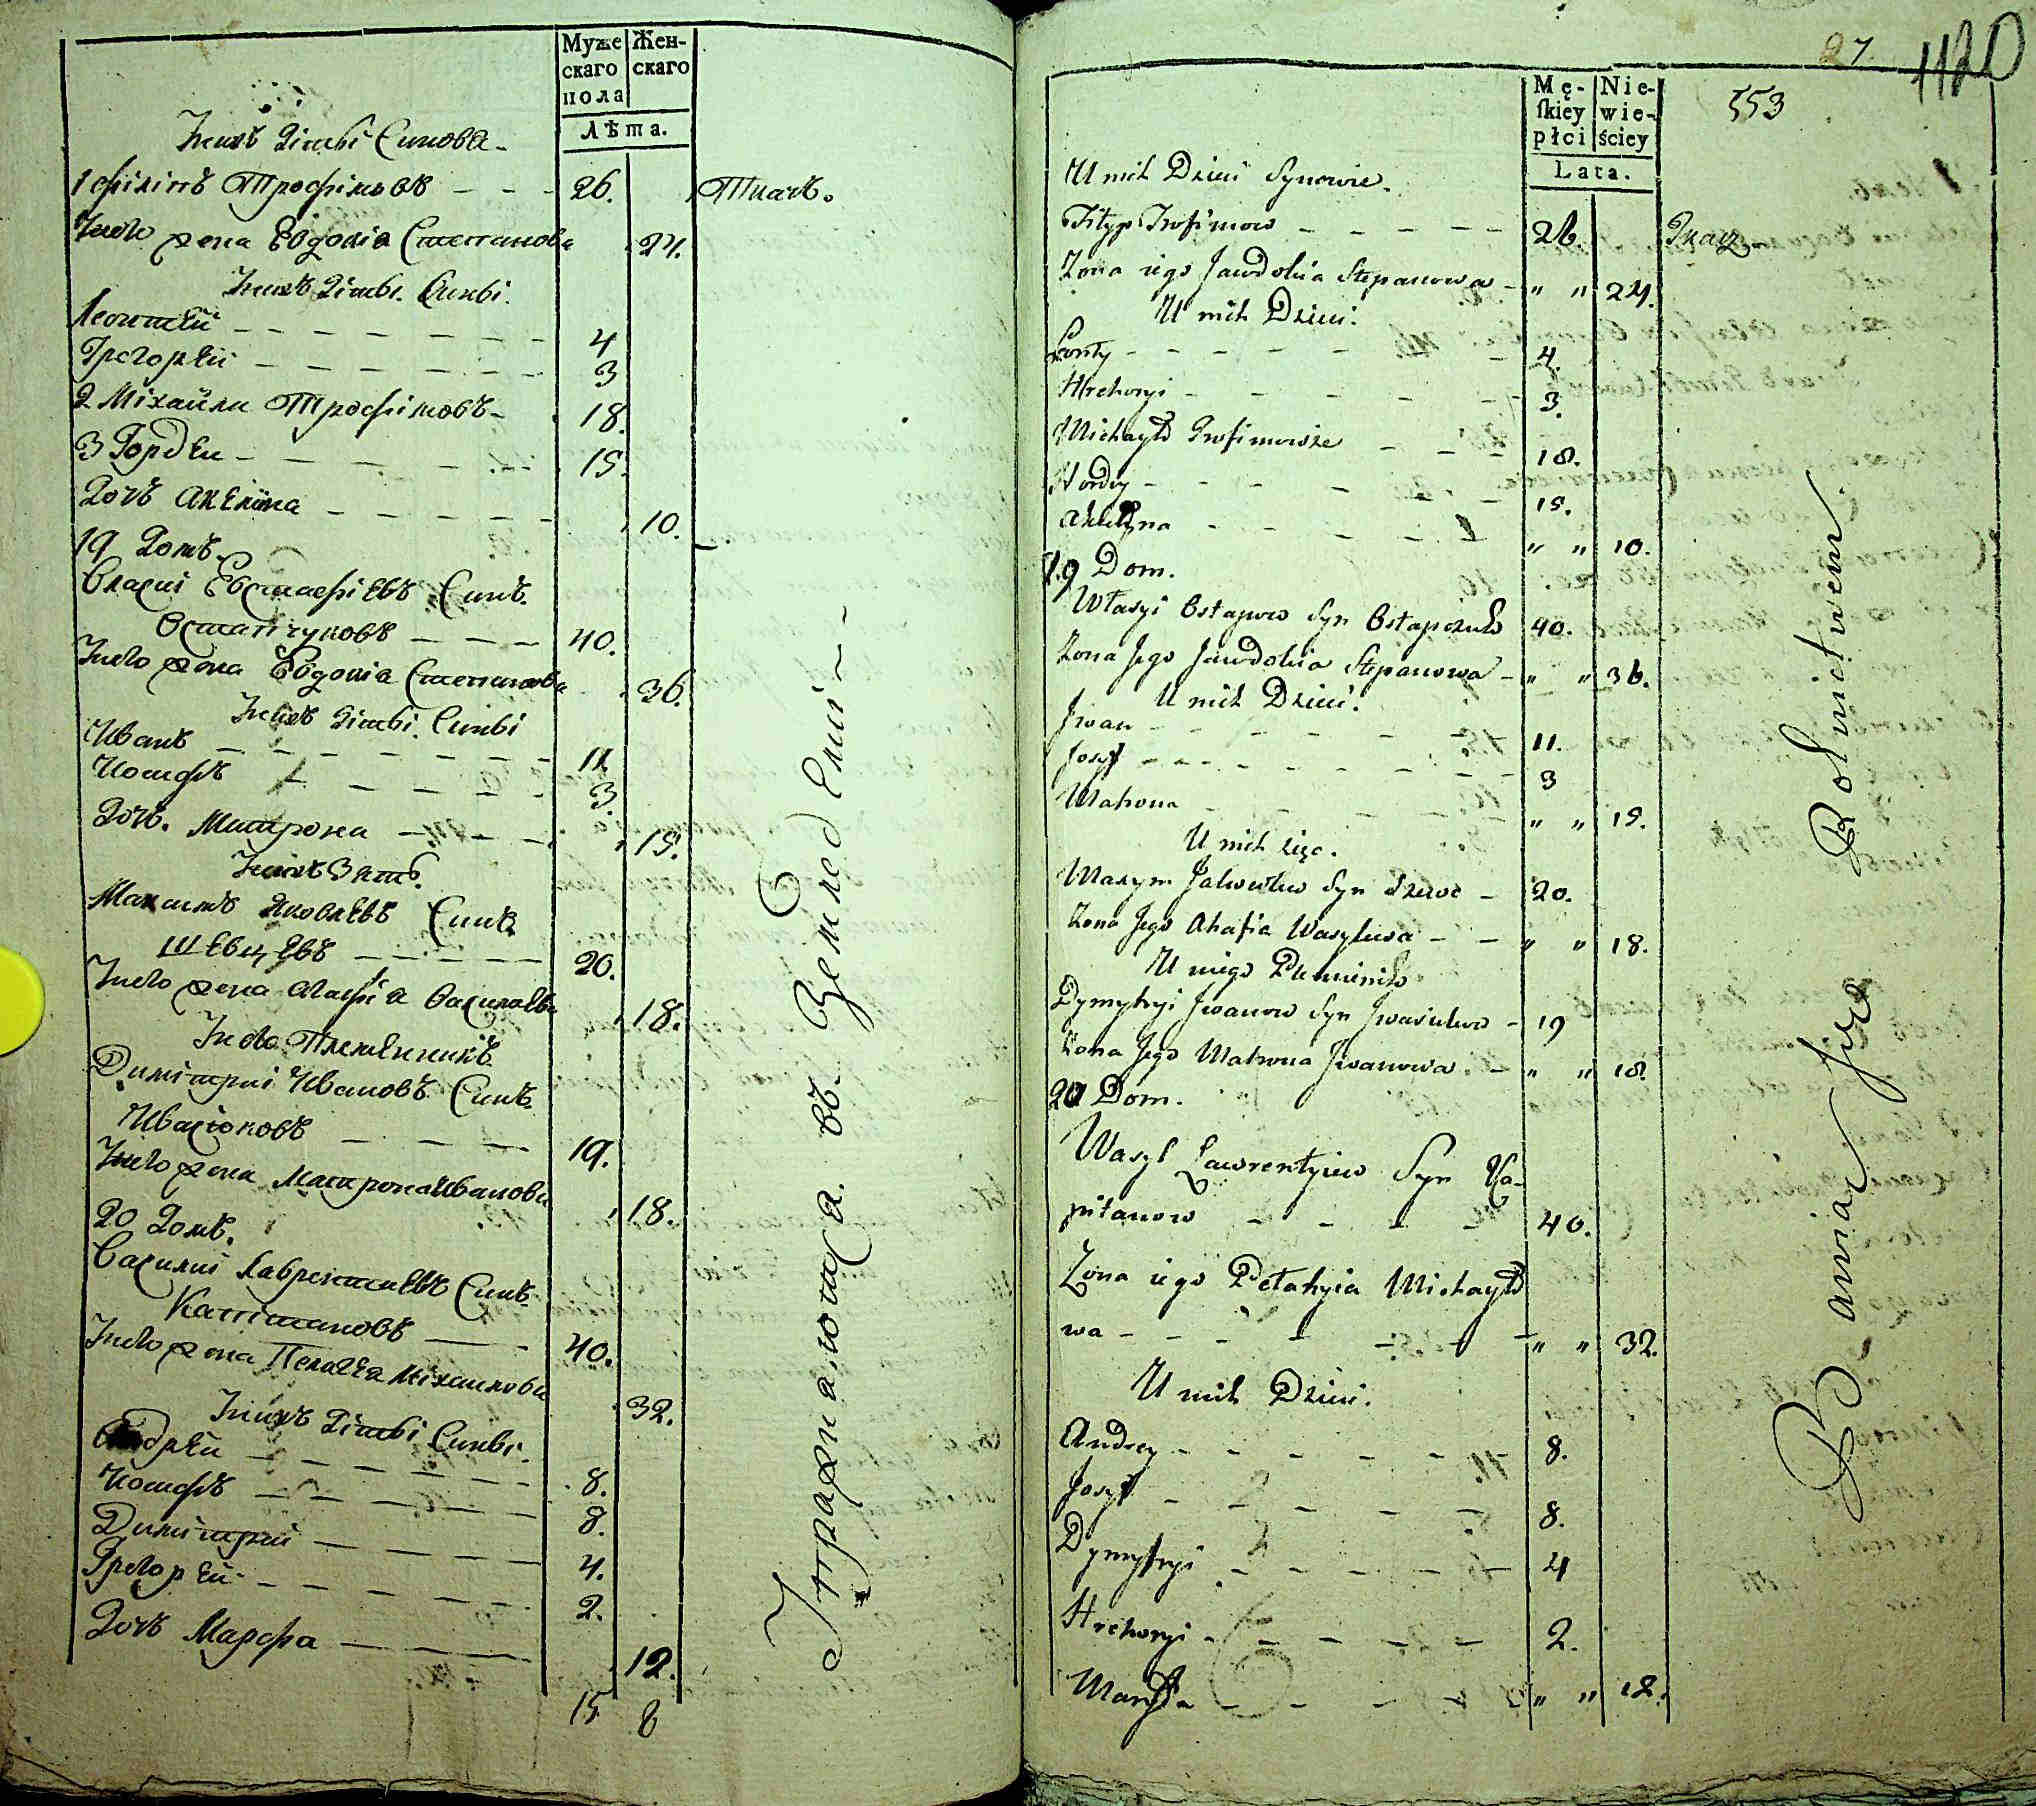 Муже Жен-
скаго скаго
пола
Лѣта.
Унихъ Дѣти Синова -
1 Филипъ Трофимовъ - - - 26. Ткачъ.
Унево жена Евдокіа Степанова 24.
Унихъ Дѣти. Сини.
Леонтѣй - - - - - - 4
Грегорѣй - - - - - - 3
2 Михайли Трофимовъ - 18.
3 Гордѣи - - - - - 15.
Дочъ Акѣлина - - - - - 10.
19 Домъ.
Власиі Евстафіевъ Синъ.
Остапчуковъ - - - 40.
Унево жена Евдокіа Степанова 36.
Унихъ Дѣти. Сини
Иванъ - - - - - - 11.
Иосифъ - - - - - 3.
Дочъ. Матрона - - - - 15.
Унихъ Зять.
Максимъ Яковлевъ Синъ
Шевцевъ - - - - - 20.
Унево жена Агафіа Василіева 18.
Унево Племѣнникъ
Димітриі Ивановъ Синъ.
Ивасюковъ - - - - 19.
Унево жена Матрона Иванова 18.
20 Домъ.
Василиі Лаврентіевъ Синъ.
Капітановъ - - 40.
Унево жена Пелагѣа Михаилова 32.
Унихъ Дѣти Сини.
Андрѣи - - - - - - 8.
Иосифъ - - - - - - 8.
Димітриі - - - - - 4.
Грегорѣй - - - - - 2.
Дочъ Марфа - - - - 12.
15 8
Упражнаютса. въ. Земледѣлиі -
27. 1120
Mę- Nie-
skiey wie-
płci ściey
Lata.
553
U nich Dzieci Synowie.
Filyp Trofimow - - - - - 26. Tkacz
Żona iego Jawdokia Stepanowa - " " 24.
U nich Dzieci.
Lonty - - - - - - 4.
Hrehoryi - - - - - - 3.
Michayło Trofimowże - - - 18.
Hordey - - - - - 15.
Akulyna - - - - - " " 10.
19 Dom.
Własyi Ostapow Syn Ostapczuk 40.
Żona Jego Jawdokia Stepanowa - " " 36.
U nich Dzieci.
Jwan - - - - - - 11.
Josyf - - - - - - - - 3
Matrona - - - - - " " 15.
U nich zięć.
Maxym Jakowlew Syn Szewc - 20.
Żona Jego Ahafia Wasylewa - - " " 18.
U niego Plemienik
Dymytryi Jwanow Syn Jwasiukow - 19
Żona Jego Matrona Jwanowa - " " 18.
20 Dom.
Wasyl Lawrentyiew Syn Ka-
pitanow - - - - 40.
Żona iego Pelahyia Michayło
wa - - - - - - - " " 32.
U nich Dzieci.
Andrey - - - - - - 8.
Josyf - - - - - - 8.
Dymytryi - - - - - - 4
Hrehoryi - - - - - - 2.
Marfa - - - - - - " " 12.
Bawią się Rolnictwem.